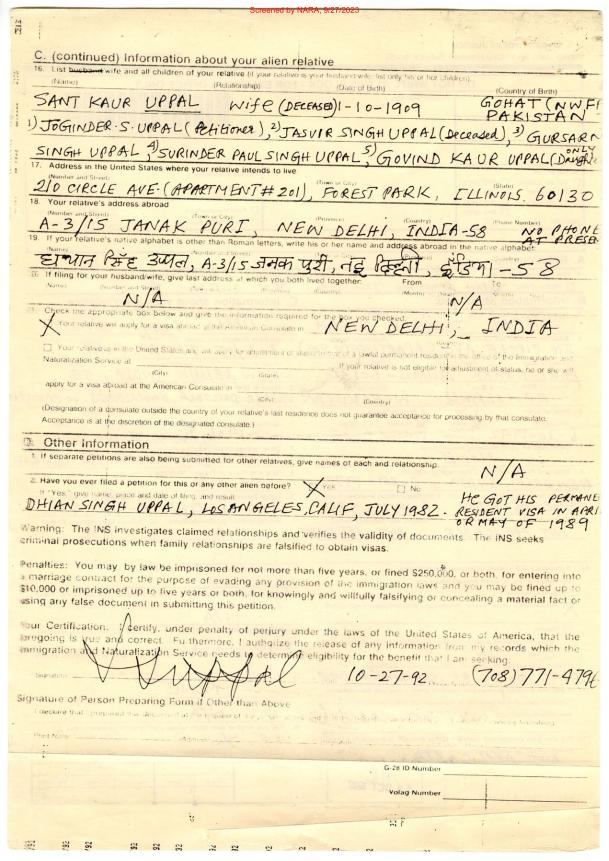 Screened by NARA, 9/27/2023
C. (continued) Information about your alien relative
16. List husband/wife and all children of your relative (if your relative is your husband/wife, list only his or her children).
(Name) (Relationship) (Date of Birth) (Country of Birth)
SANT KAUR UPPAL Wife (DECEASED) 1-10-1909 GOHAT (NWF
PAKISTAN
1) JOGINDER·S·UPPAL (Petitioner), 2) JASVIR SINGH UPPAL (Deceased), 3) GURSARN
SINGH UPPAL, 4) SURINDER PAUL SINGH UPPAL, 5) GOVIND KAUR UPPAL (ONLY Daught
17. Address in the United States where your relative intends to live
(Number and Street) (Town or City) (State)
210 CIRCLE AVE. (APARTMENT # 201), FOREST PARK, ILLINOIS. 60130
18. Your relative's address abroad
(Number and Street) (Town or City) (Province) (Country) (Phone Number)
A-3/15 JANAK PURI, NEW DELHI, INDIA-58 NO PHONE
AT PRESEN
19. If your relative's native alphabet is other than Roman letters, write his or her name and address abroad in the native alphabet:
(Name) (Number and Street) (Town or City) (Province) (Country)
सिंह उप्पल, A-3/15 जनक पुरी, नई दिल्ली, इंडिया -58
20. If filing for your husband/wife, give last address at which you both lived together: From To
N/A N/A
21. Check the appropriate box below and give the information required for the box you checked:
X Your relative will apply for a visa abroad at the American Consulate in NEW DELHI, INDIA
☐ Your relative is in the United States and will apply for adjustment of status to that of a lawful permanent resident in the office of the Immigration and
Naturalization Service at If your relative is not eligible for adjustment of status, he or she will
(City) (State)
apply for a visa abroad at the American Consulate in
(City) (Country)
(Designation of a consulate outside the country of your relative's last residence does not guarantee acceptance for processing by that consulate.
Acceptance is at the discretion of the designated consulate.)
D. Other Information
1. If separate petitions are also being submitted for other relatives, give names of each and relationship.
N/A
2. Have you ever filed a petition for this or any other alien before? X Yes ☐ No
If "Yes," give name, place and date of filing, and result.
DHIAN SINGH UPPAL, LOS ANGELES, CALIF, JULY 1982. HE GOT HIS PERMANE
RESIDENT VISA IN APRI
OR MAY OF 1989
Warning: The INS investigates claimed relationships and verifies the validity of documents. The INS seeks
criminal prosecutions when family relationships are falsified to obtain visas.
Penalties: You may, by law be imprisoned for not more than five years, or fined $250,000, or both, for entering into
a marriage contract for the purpose of evading any provision of the immigration laws and you may be fined up to
$10,000 or imprisoned up to five years or both, for knowingly and willfully falsifying or concealing a material fact or
using any false document in submitting this petition.
Your Certification: I certify, under penalty of perjury under the laws of the United States of America, that the
foregoing is true and correct. Furthermore, I authorize the release of any information from my records which the
Immigration and Naturalization Service needs to determine eligibility for the benefit that I am seeking.
Signature Uppal 10-27-92 (708) 771-4796
Signature of Person Preparing Form if Other than Above
I declare that I prepared this document at the request of
Print Name
G-28 ID Number
Volag Number